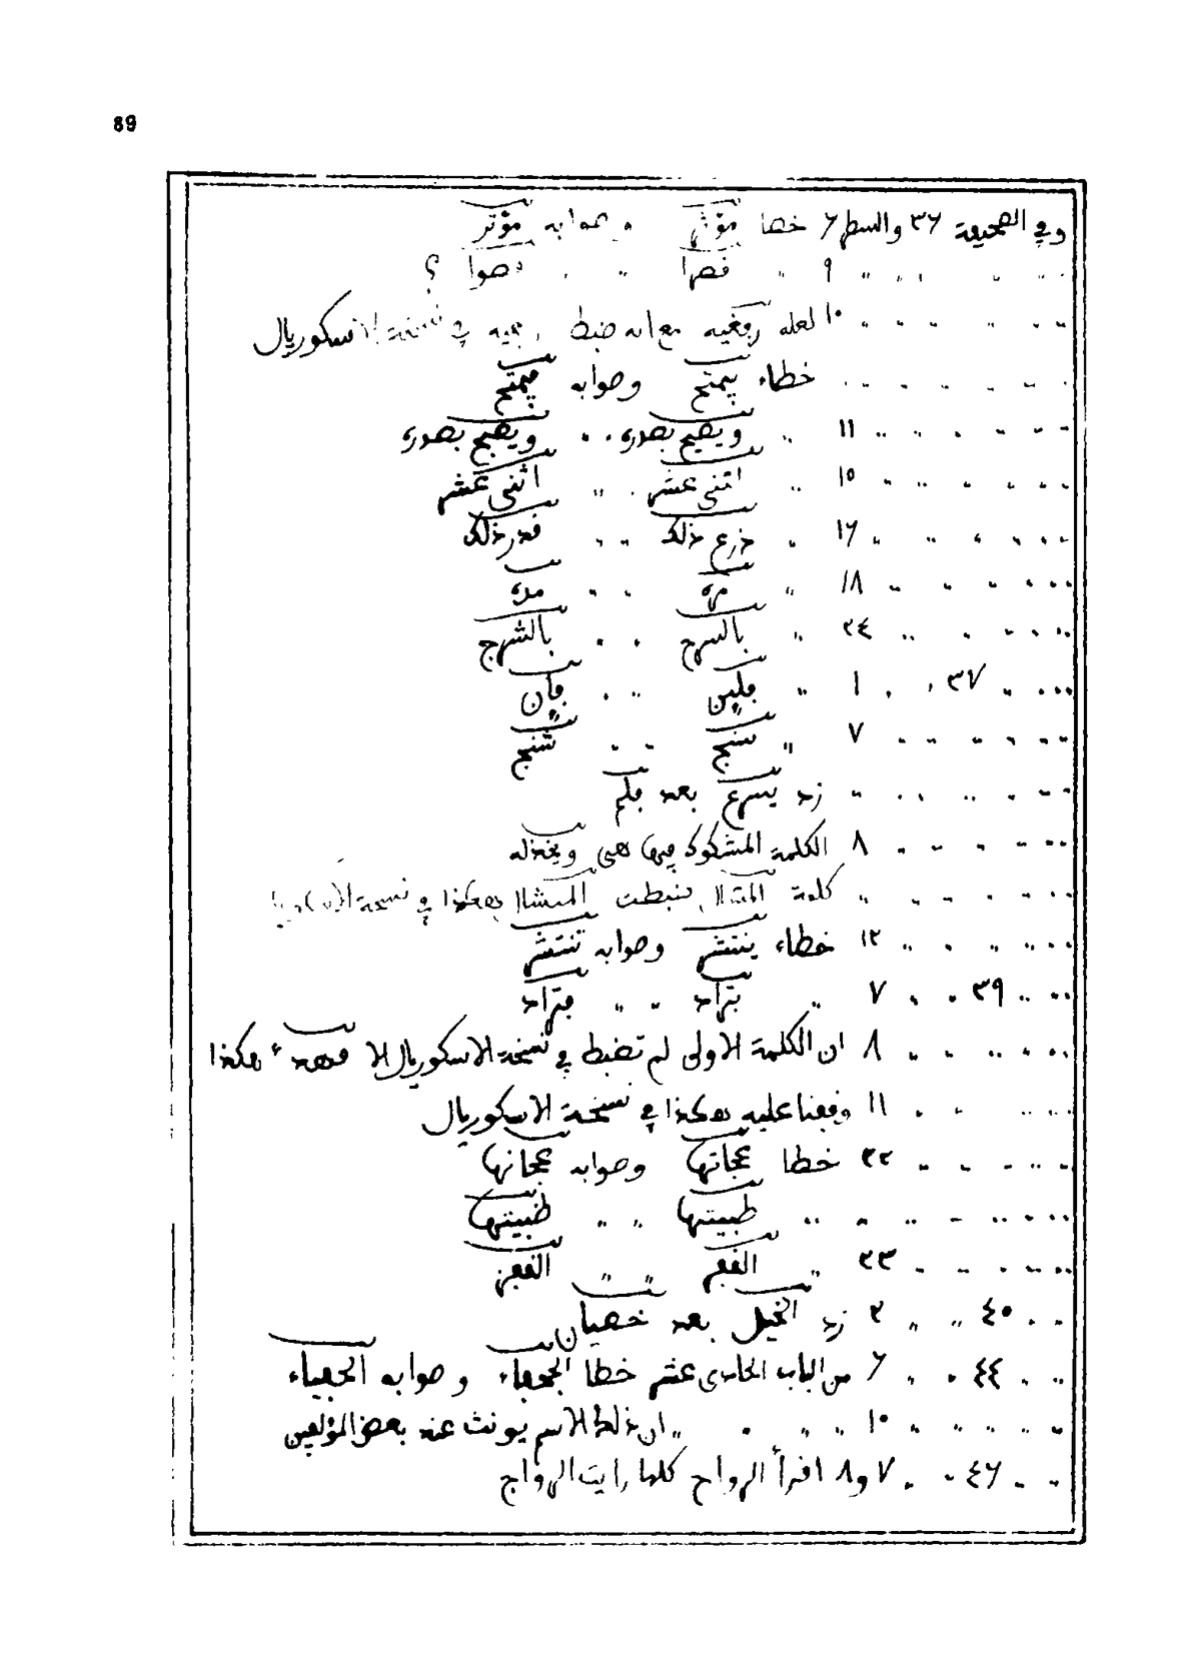 89
وفي الصحيفة ٣٦ والسطر ٦ خطا مؤثر وصوابه مؤتر
" " " " ٩ " فصرا " " فصوا ؟
" " " " ١٠ لعله رفغيه مع انه ضبط في نسخة الاسكوريال
" " " " خطاء يمتح وصوابه فيمتح
" " " " ١١ " ويصيح بصدره " " ويصبح بصدره
" " " " ١٥ " اتنى عشر " " اثنى عشر
" " " " ١٦ " ذرع ذلك " " قدر ذلك
" " " " ١٨ " مرة " " مدة
" " " " ٢٤ " بالسرج " " بالشرج
" " ٣٧ " ١ " فلين " " فإن
" " " " ٧ " سنج " " شنج
" " " " زد يسرع بعد فلم
" " " " ٨ الكلمة المشكوك فيها هي ويخذله
" " " " كلمة ضبطت هكذا في نسخة
" " " " ١٢ خطاء ينتشر وصوابه تنتشر
" " ٣٩ " ٧ " بتراد " " فتراد
" " " " ٨ ان الكلمة الاولى لم تضبط في نسخة الاسكوريال الا هكذا
" " " " ١١ وقفنا عليه هكذا في نسخة الاسكوريال
" " " " ٢٢ خطا عجاتها وصوابه عجانها
" " " " طبيتها " " ظبيتها
" " " " ٢٣ " القفر " " القفز
" " ٤٥ " ٢ زد الخيل بعد خصيان
" " ٤٤ " ٦ من الباب الحادى عشر خطا الجمعاء وصوابه الجعباء
" " " " ١٠ " " ان ذلك الاسم يونث عند بعض المؤلفين
" " ٤٦ " ٧ و٨ اقرأ الرواح كلما رايت الرواج